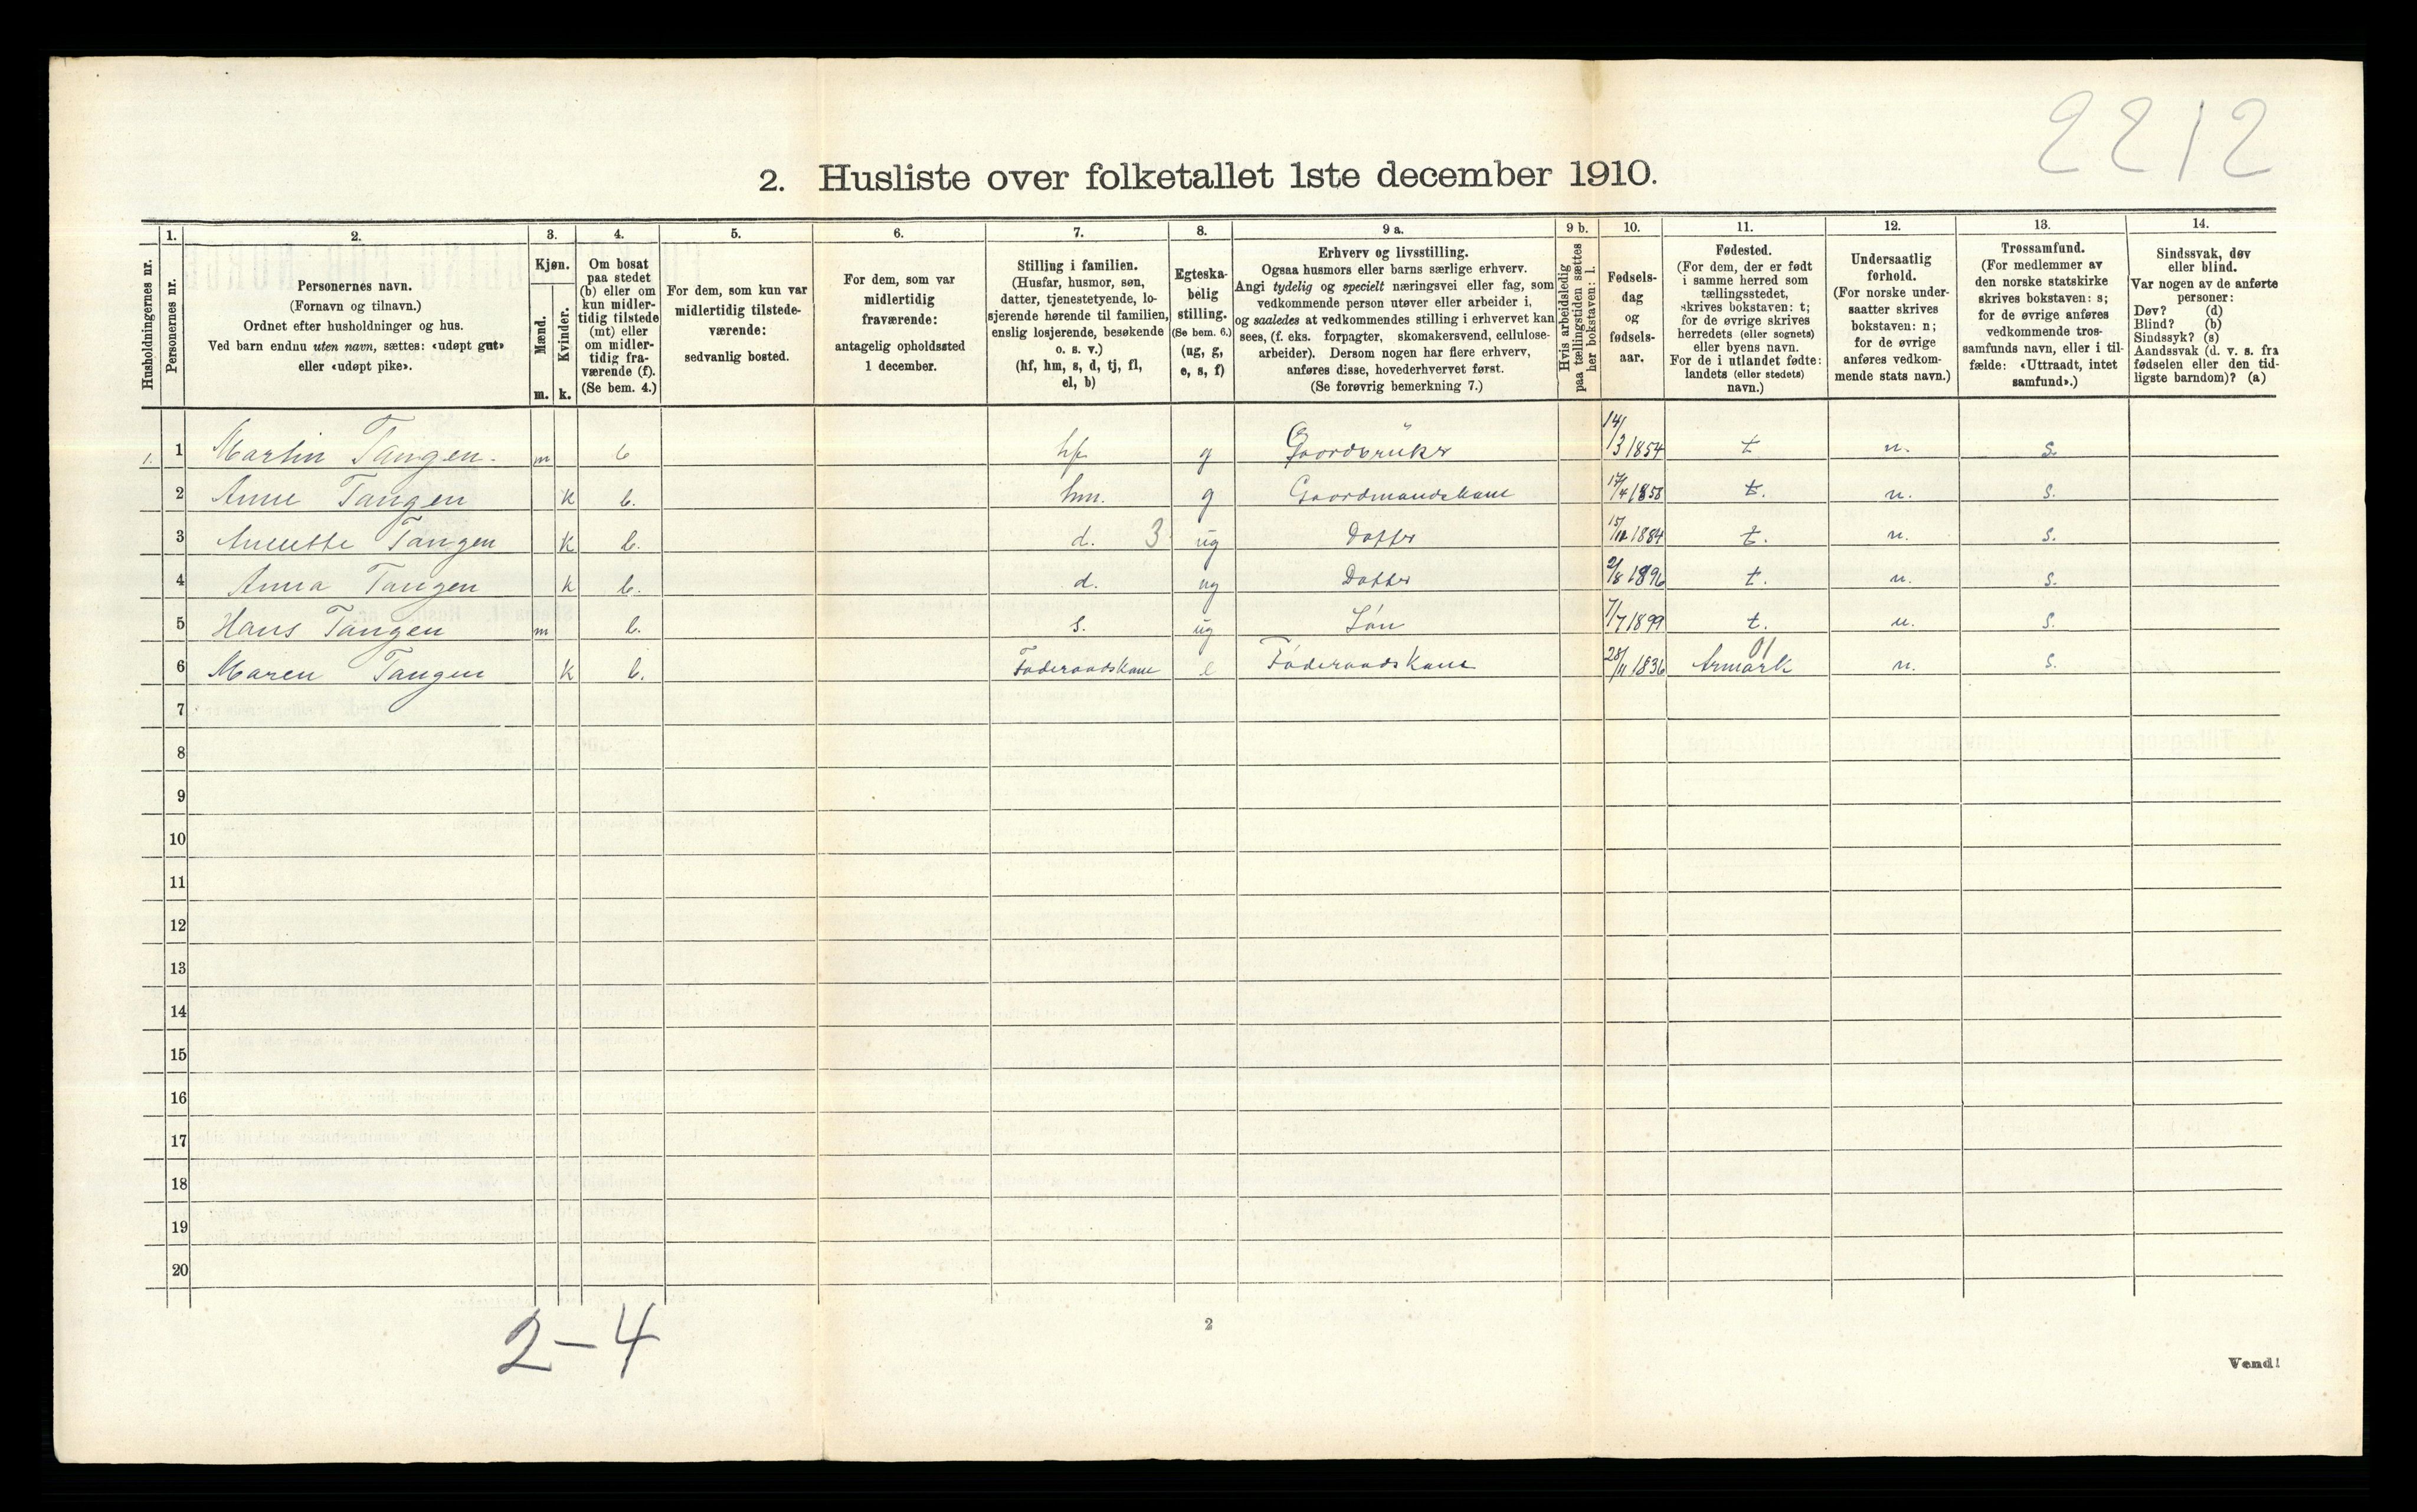 2212
2. Husliste over folketallet 1ste december 1910.
Husholdningernes nr.
1.
Personernes nr.
2.
Personernes navn.
(Fornavn og tilnavn.)
Ordnet efter husholdninger og hus.
Ved barn endnu uten navn, sættes: «udøpt gut»
eller «udøpt pike».
3.
Kjøn.
Mænd.
Kvinder.
m. k.
4.
Om bosat
paa stedet
(b) eller om
kun midler-
tidig tilstede
(mt) eller
om midler-
tidig fra-
værende (f).
(Se bem. 4.)
5.
For dem, som kun var
midlertidig tilstede-
værende:
sedvanlig bosted.
6.
For dem, som var
midlertidig
fraværende:
antagelig opholdssted
1 december.
7.
Stilling i familien.
(Husfar, husmor, søn,
datter, tjenestetyende, lo-
sjerende hørende til familien,
enslig losjerende, besøkende
o. s. v.)
(hf, hm, s, d, tj, fl,
el, b)
8.
Egteska-
belig
stilling.
(Se bem. 6.)
(ug, g,
e, s, f)
9 a.
Erhverv og livsstilling.
Ogsaa husmors eller barns særlige erhverv.
Angi tydelig og specielt næringsvei eller fag, som
vedkommende person utøver eller arbeider i,
og saaledes at vedkommendes stilling i erhvervet kan
sees, (f. eks. forpagter, skomakersvend, cellulose-
arbeider). Dersom nogen har flere erhverv,
anføres disse, hovederhvervet først.
(Se forøvrig bemerkning 7.)
9 b.
Hvis arbeidsledig
paa tællingstiden sættes
her bokstaven: l.
10.
Fødsels-
dag
og
fødsels-
aar.
11.
Fødested.
(For dem, der er født
i samme herred som
tællingsstedet,
skrives bokstaven: t;
for de øvrige skrives
herredets (eller sognets)
eller byens navn.
For de i utlandet fødte:
landets (eller stedets)
navn.)
12.
Undersaatlig
forhold.
(For norske under-
saatter skrives
bokstaven: n;
for de øvrige
anføres vedkom-
mende stats navn.)
13.
Trossamfund.
(For medlemmer av
den norske statskirke
skrives bokstaven: s;
for de øvrige anføres
vedkommende tros-
samfunds navn, eller i til-
fælde: «Uttraadt, intet
samfund».)
14.
Sindssvak, døv
eller blind.
Var nogen av de anførte
personer:
Døv? (d)
Blind? (b)
Sindssyk? (s)
Aandssvak (d. v. s. fra
fødselen eller den tid-
ligste barndom)? (a)
1. 1 Martin Tangen. m b hf. g Gaardbrüker 14/3 1854 t n. s.
2 Anne Tangen k b. hm. g Gaardmandskone 17/4 1858 t. n. s.
3 Annette Tangen k b. d. 3 ug Datter 15/12 1884 t. n. s.
4 Anna Tangen k b. d. ug Datter 2/8 1896 t. n. s.
5 Hans Tangen m b. s. ug Søn 7/7 1899 t. n. s.
6 Maren Tangen k b. Føderaadskone e Føderaadskone 28/11 1836 Armark n. s.
01
7
8
9
10
11
12
13
14
15
16
17
18
19
20
2-4
2
Vend!